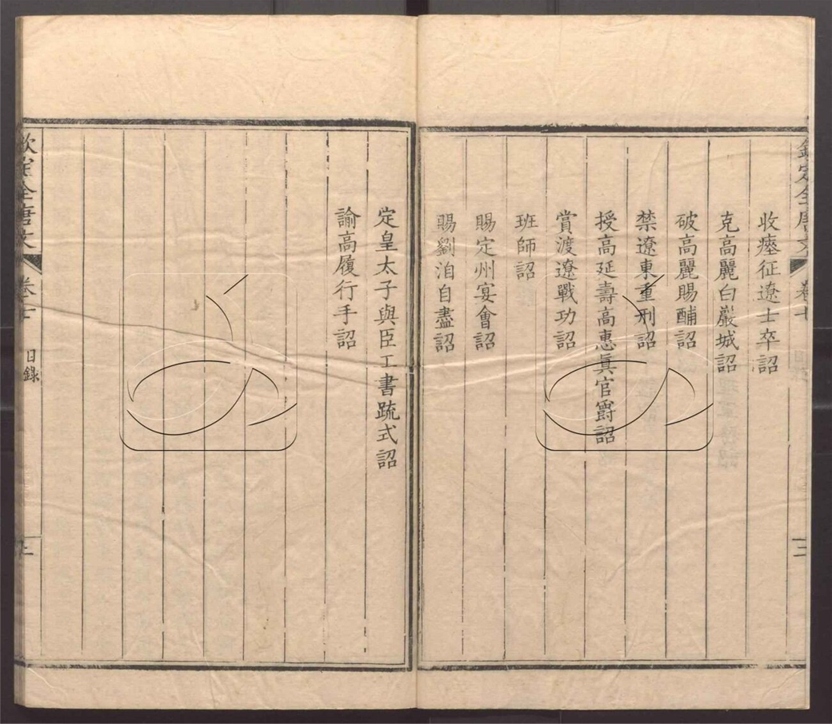 收瘞征遼士卒詔
克高麗白巖城詔
破高麗賜酺詔
禁遼東重刑詔
授高延壽高惠眞官爵詔
賞渡遼戰功詔
班師詔
賜定州宴會詔
賜劉洎自盡詔
定皇太子與臣工書疏式詔
諭高履行手詔
欽定全唐文
卷七
目錄